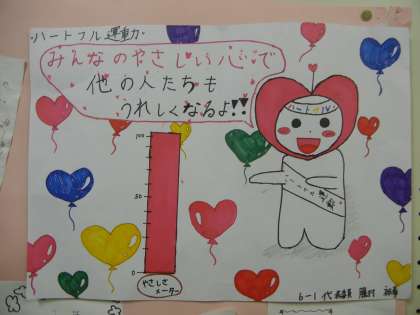 ハートフル運動
みんなのやさしい心で
他の人たちも
うれしくなるよ!!
ハートフル
100
50
0
やさしさ
メーター
6-1 代表委員